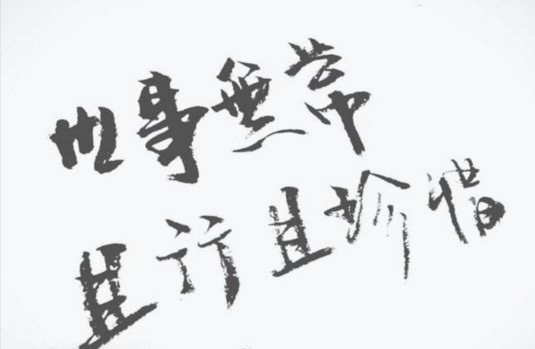 世事無常
且行且珍惜